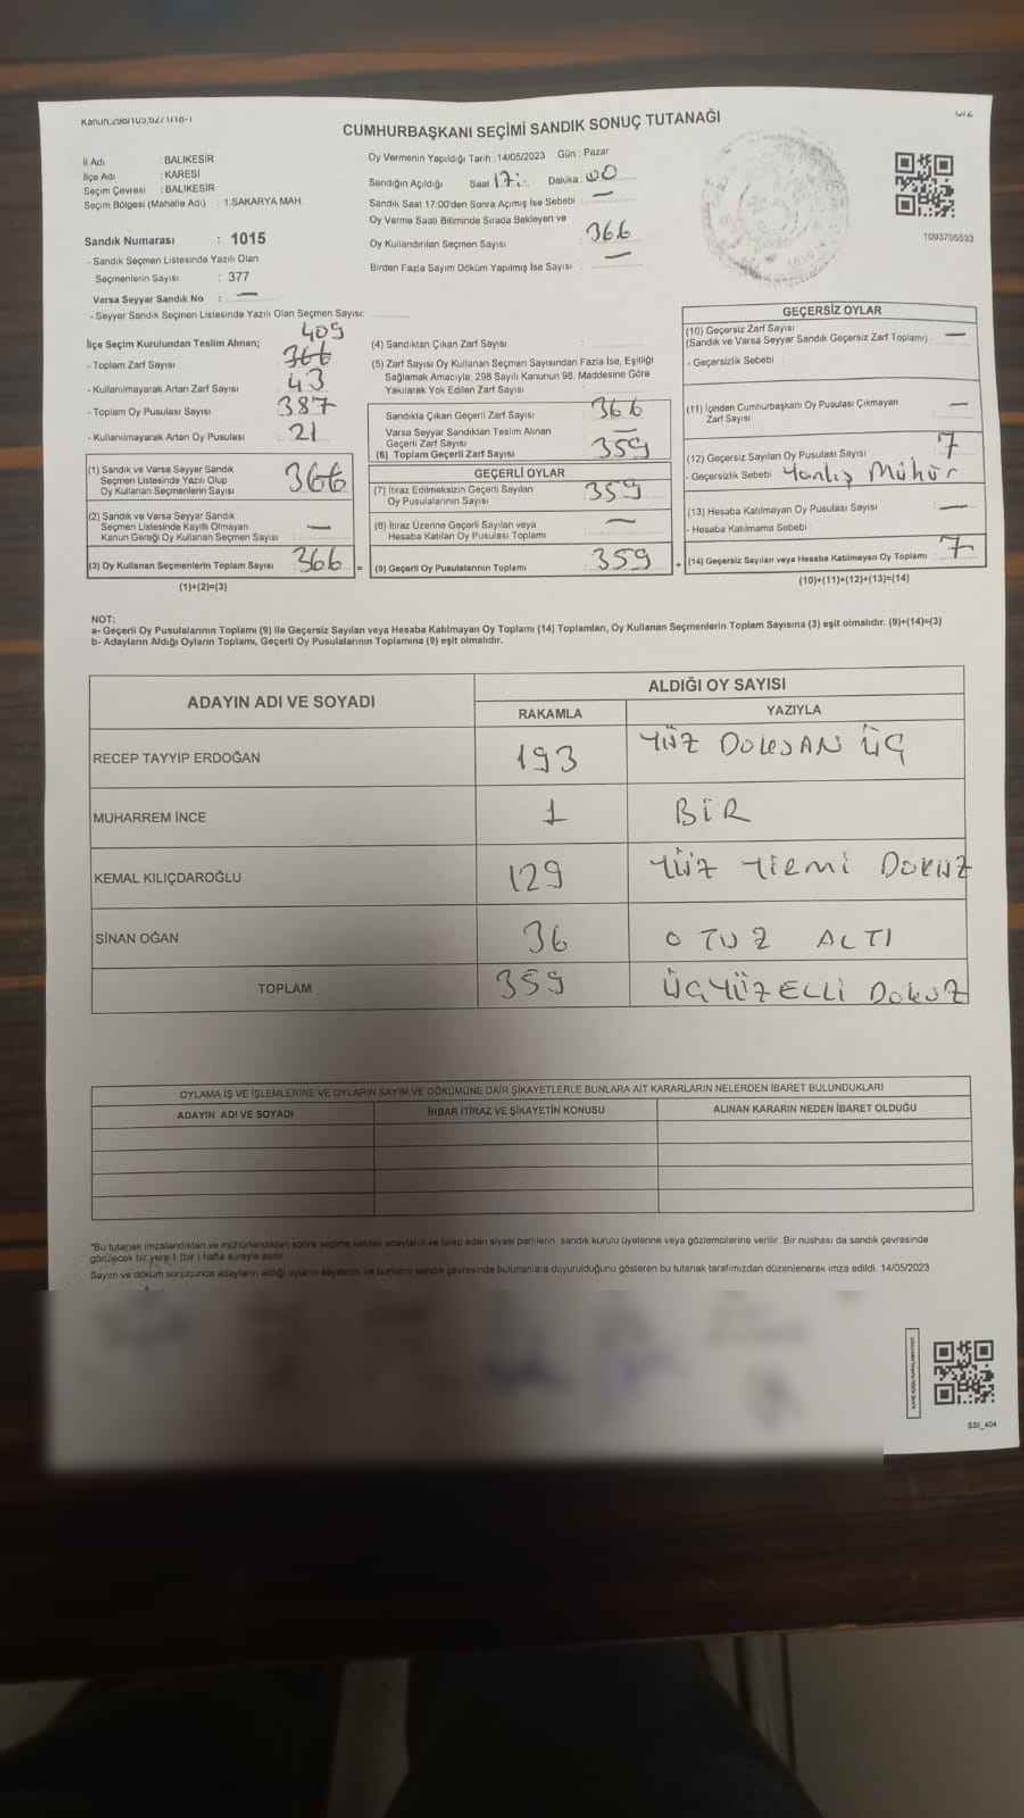 CUMHURBAŞKANI SEÇİMİ SANDIK SONUÇ TUTANAĞI
İl Adı : BALIKESİR
İlçe Adı : KARESİ
Seçim Çevresi : BALIKESİR
Seçim Bölgesi (Mahalle Adı) : 1.SAKARYA MAH.
Sandık Numarası : 1015
- Sandık Seçmen Listesinde Yazılı Olan
Seçmenlerin Sayısı : 377
Varsa Seyyar Sandık No : —
- Seyyar Sandık Seçmen Listesinde Yazılı Olan Seçmen Sayısı:
Oy Vermenin Yapıldığı Tarih : 14/05/2023 Gün : Pazar
Sandığın Açıldığı Saat 17: Dakika: 00
Sandık Saat 17:00'den Sonra Açımış İse Sebebi —
Oy Verme Saati Bitiminde Sırada Bekleyen ve
Oy Kullandırılan Seçmen Sayısı 366
Birden Fazla Sayım Döküm Yapılmış İse Sayısı —
1093705533
409
İlçe Seçim Kurulundan Teslim Alınan;
- Toplam Zarf Sayısı 366
- Kullanılmayarak Artan Zarf Sayısı 43
- Toplam Oy Pusulası Sayısı 387
- Kullanılmayarak Artan Oy Pusulası 21
(1) Sandık ve Varsa Seyyar Sandık
Seçmen Listesinde Yazılı Olup
Oy Kullanan Seçmenlerin Sayısı 366
(2) Sandık ve Varsa Seyyar Sandık
Seçmen Listesinde Kayıtlı Olmayan
Kanun Gereği Oy Kullanan Seçmen Sayısı —
(3) Oy Kullanan Seçmenlerin Toplam Sayısı 366
(1)+(2)=(3)
(4) Sandıktan Çıkan Zarf Sayısı
(5) Zarf Sayısı Oy Kullanan Seçmen Sayısından Fazla İse, Eşitliği
Sağlamak Amacıyla; 298 Sayılı Kanunun 98. Maddesine Göre
Yakılarak Yok Edilen Zarf Sayısı
Sandıkta Çıkan Geçerli Zarf Sayısı 366
Varsa Seyyar Sandıktan Teslim Alınan
Geçerli Zarf Sayısı —
(6) Toplam Geçerli Zarf Sayısı 359
GEÇERLİ OYLAR
(7) İtiraz Edilmeksizin Geçerli Sayılan
Oy Pusulalarının Sayısı 359
(8) İtiraz Üzerine Geçerli Sayılan veya
Hesaba Katılan Oy Pusulası Toplamı —
= (9) Geçerli Oy Pusulalarının Toplamı 359
GEÇERSİZ OYLAR
(10) Geçersiz Zarf Sayısı
(Sandık ve Varsa Seyyar Sandık Geçersiz Zarf Toplamı) —
- Geçersizlik Sebebi
(11) İçinden Cumhurbaşkanı Oy Pusulası Çıkmayan
Zarf Sayısı —
(12) Geçersiz Sayılan Oy Pusulası Sayısı 7
- Geçersizlik Sebebi Yanlış Mühür
(13) Hesaba Katılmayan Oy Pusulası Sayısı —
- Hesaba Katılmama Sebebi
+ (14) Geçersiz Sayılan veya Hesaba Katılmayan Oy Toplamı 7
(10)+(11)+(12)+(13)=(14)
NOT:
a- Geçerli Oy Pusulalarının Toplamı (9) ile Geçersiz Sayılan veya Hesaba Katılmayan Oy Toplamı (14) Toplamları, Oy Kullanan Seçmenlerin Toplam Sayısına (3) eşit olmalıdır. (9)+(14)=(3)
b- Adayların Aldığı Oyların Toplamı, Geçerli Oy Pusulalarının Toplamına (9) eşit olmalıdır.
ADAYIN ADI VE SOYADI ALDIĞI OY SAYISI
RAKAMLA YAZIYLA
RECEP TAYYİP ERDOĞAN 193 YÜZ DOKSAN ÜÇ
MUHARREM İNCE 1 BİR
KEMAL KILIÇDAROĞLU 129 YÜZ YİRMİ DOKUZ
SİNAN OĞAN 36 OTUZ ALTI
TOPLAM 359 ÜÇYÜZ ELLİ DOKUZ
OYLAMA İŞ VE İŞLEMLERİNE VE OYLARIN SAYIM VE DÖKÜMÜNE DAİR ŞİKAYETLERLE BUNLARA AİT KARARLARIN NELERDEN İBARET BULUNDUKLARI
ADAYIN ADI VE SOYADI İHBAR İTİRAZ VE ŞİKAYETİN KONUSU ALINAN KARARIN NEDEN İBARET OLDUĞU
*Bu tutanak imzalandıktan ve mühürlendikten sonra seçime katılan adayların ve talep eden siyasi partilerin, sandık kurulu üyelerine veya gözlemcilerine verilir. Bir nüshası da sandık çevresinde
görülecek bir yere 1 (bir) hafta süreyle asılır.
Sayım ve döküm sonucunda adayların aldığı oyların sayılarını ve bunların sandık çevresinde bulunanlara duyurulduğunu gösteren bu tutanak tarafımızdan düzenlenerek imza edildi. 14/05/2023
SSI_404